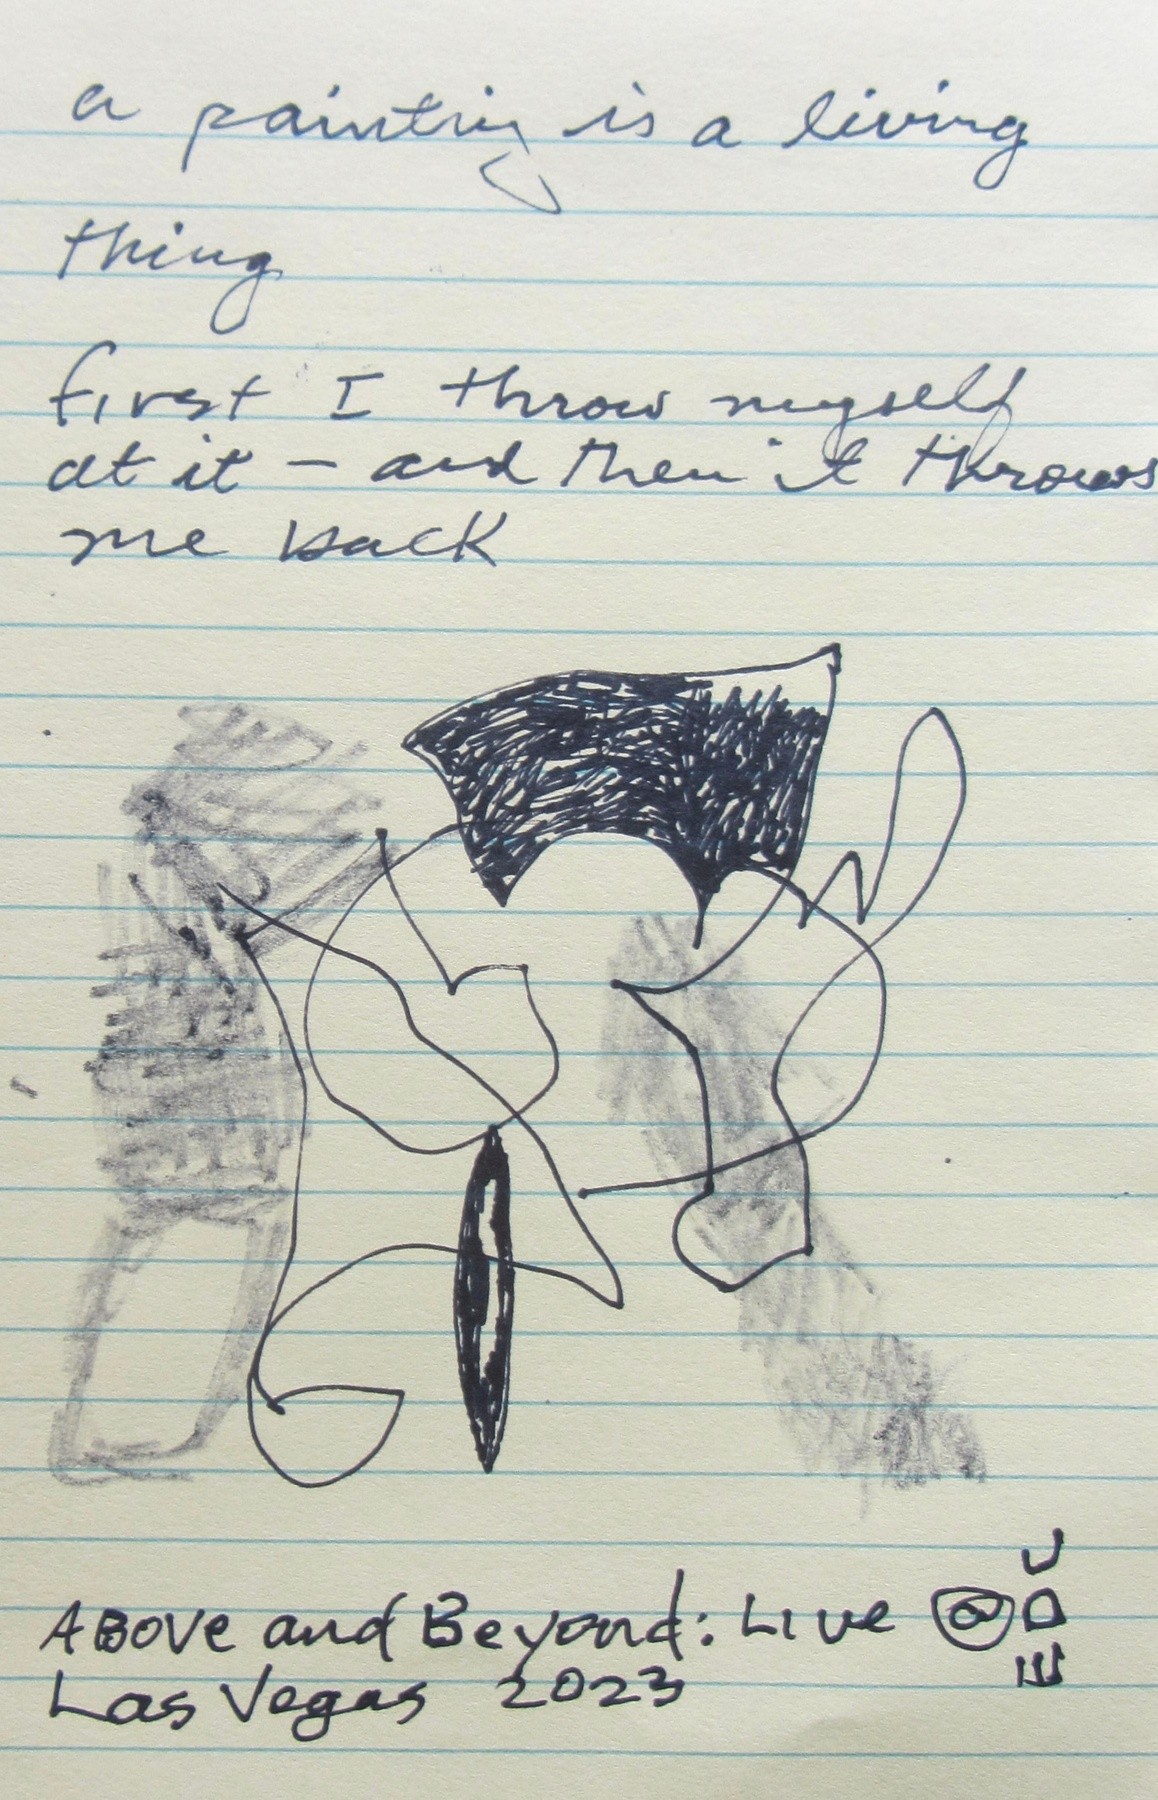 a painting is a living
thing
first I throw myself
at it – and then it throws
me back
ABOVE and Beyond: Live @
Las Vegas 2023